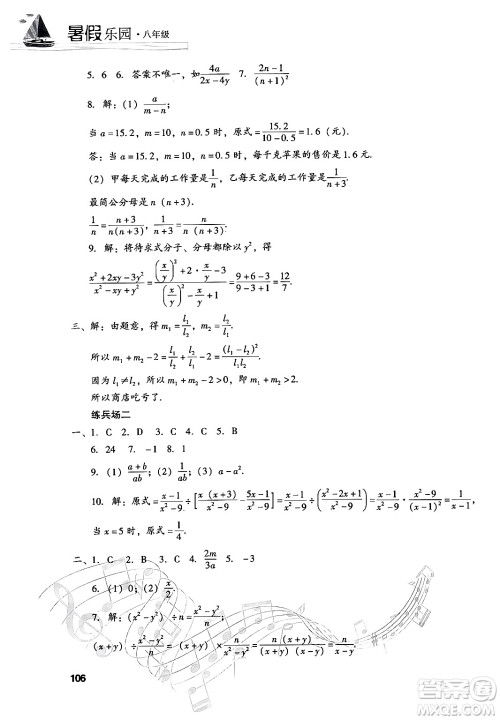 暑假乐园·八年级
5. 6  6. 答案不唯一，如 4a/(2x-4y)  7. (2n-1)/(n+1)²
8. 解：(1) a/(m-n)；
当 a=15.2，m=10，n=0.5 时，原式 = 15.2/(10-0.5) =1.6（元）.
答：当 a=15.2，m=10，n=0.5 时，每千克苹果的售价是 1.6 元.
(2) 甲每天完成的工作量是 1/n，乙每天完成的工作量是 1/(n+3).
最简公分母是 n（n+3）.
1/n = (n+3)/(n(n+3))，1/(n+3) = n/(n(n+3)).
9. 解：将待求式分子、分母都除以 y²，得
(x²+2xy-3y²)/(x²-xy+y²) = ((x/y)²+2·x/y-3)/((x/y)²-x/y+1) = (9+6-3)/(9-3+1) = 12/7
三、解：由题意，得 m₁ = l₁/l₂，m₂ = l₂/l₁.
所以 m₁+m₂-2 = l₁/l₂ + l₂/l₁ - 2 = (l₁-l₂)²/(l₁l₂).
因为 l₁≠l₂，所以 m₁+m₂-2>0，即 m₁+m₂>2.
所以商店吃亏了.
练兵场二
一、1. C  2. D  3. C  4. C  5. C
6. 24  7. -1  8. 1
9. (1) (a+b)/(a-b)；(2) 1/a；(3) a-a².
10. 解：原式 = (x-1)/(x²-9) ÷ [x(x+3)/(x²-9) - (5x-1)/(x²-9)] = (x-1)/(x²-9) ÷ ((x²-2x+1)/(x²-9)) = (x-1)/(x²-9) × (x²-9)/(x-1)² = 1/(x-1).
当 x=5 时，原式 = 1/4.
二、1. C  2. B  3. C  4. 2m/3a  5. -3
6. (1) 0；(2) x/2.
7. 解：(x²-y²)÷n = (x²-y²)/n，
(x+y)÷(x²-y²)/n = (x+y)× n/(x²-y²) = n(x+y)/((x+y)(x-y)) = n/(x-y).
106